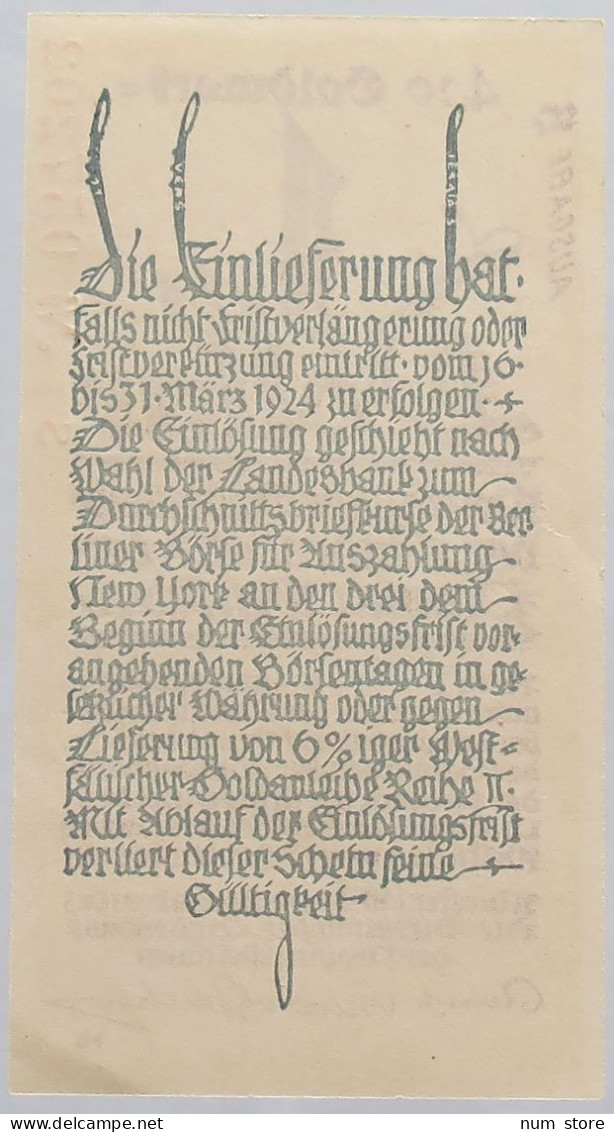 Die Einlieferung hat·
falls nicht Fristverlängerung oder
Fristverkürzung eintritt· vom 16·
bis 31· März 1924 zu erfolgen·
Die Einlösung geschieht nach
Wahl der Landesbank zum
Durchschnittsbriefkurse der Ber
liner Börse für Auszahlung
New York an den drei dem
Beginn der Einlösungsfrist vor-
angehenden Börsentagen in ge-
setzlicher Währung oder gegen
Lieferung von 6%iger West=
fälischer Goldanleihe Reihe II·
Mit Ablauf der Einlösungsfrist
verliert dieser Schein seine
Gültigkeit
www.delcampe.net num_store